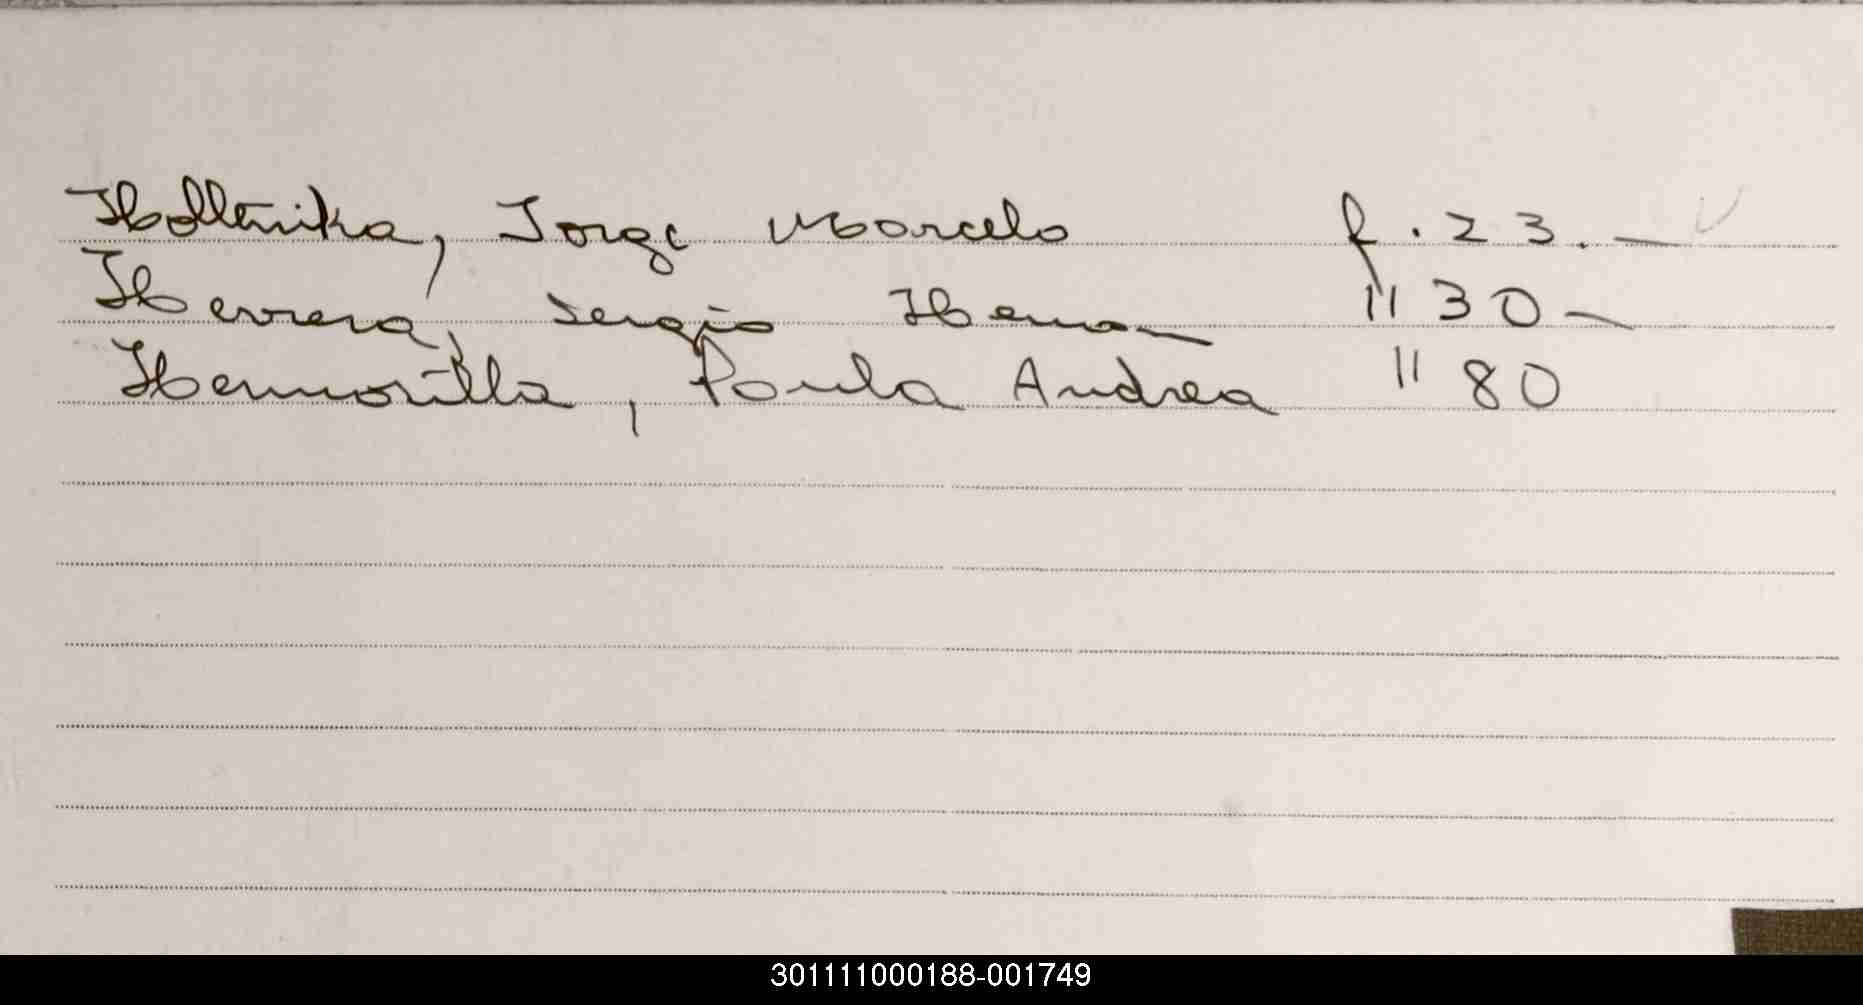 Holtenika, Jorge Marcelo f. 23. —
Herrera, Sergio Hernan " 30 —
Hermosilla, Paula Andrea " 80
301111000188-001749